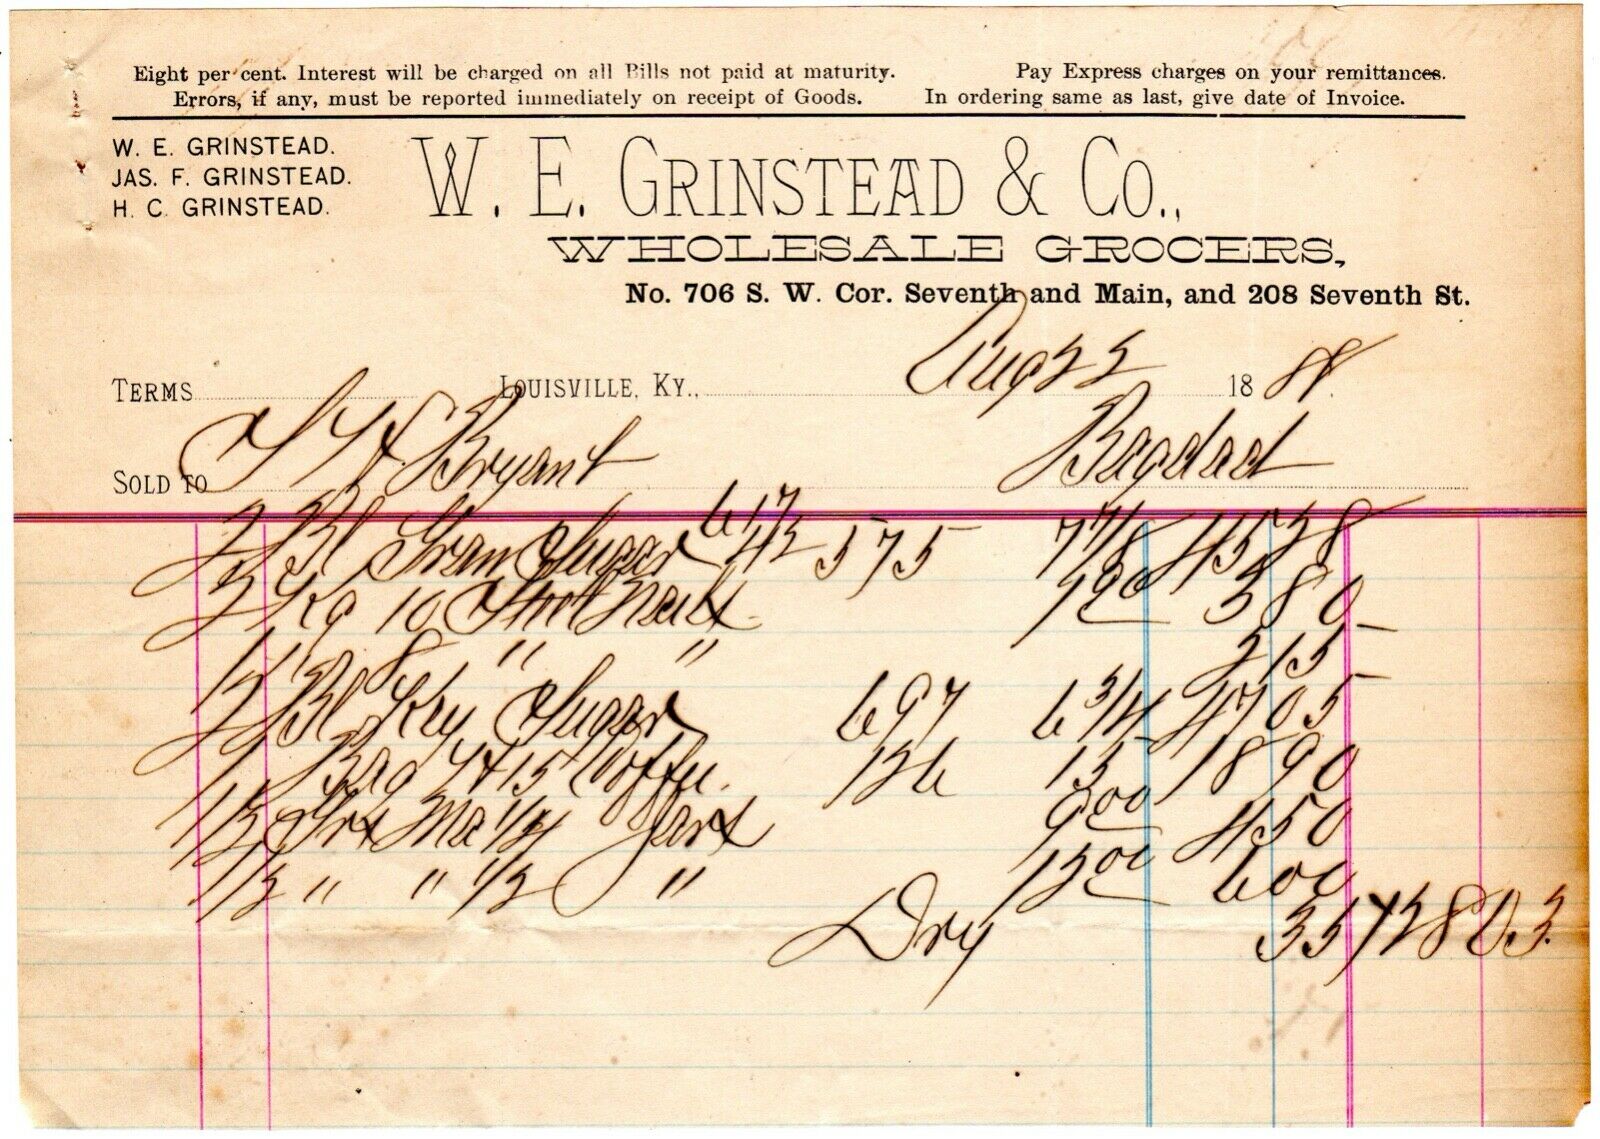 Eight per cent. Interest will be charged on all Bills not paid at maturity. Pay Express charges on your remittances.
Errors, if any, must be reported immediately on receipt of Goods. In ordering same as last, give date of Invoice.
W. E. GRINSTEAD.
JAS. F. GRINSTEAD.
H. C. GRINSTEAD.
W. E. GRINSTEAD & CO.,
WHOLESALE GROCERS,
No. 706 S. W. Cor. Seventh and Main, and 208 Seventh St.
TERMS LOUISVILLE, KY., Aug 22 1888
SOLD TO Bryant Bagdad
2 Bl Gran Sugar 617/42 575 7 7/8 45 28
2 Kg 10 Steel Nails 1 90 3 80
1 " 8 " " 2 15
2 Bl Key Sugar 697 6 3/4 47 05
1 Bag 15 Coffee. 126 15 18 90
1/2 Grs Ma 1/4 Jars 9 00 4 50
1/2 " " 1/2 " 12 00 6 00
Dry 35 128 03